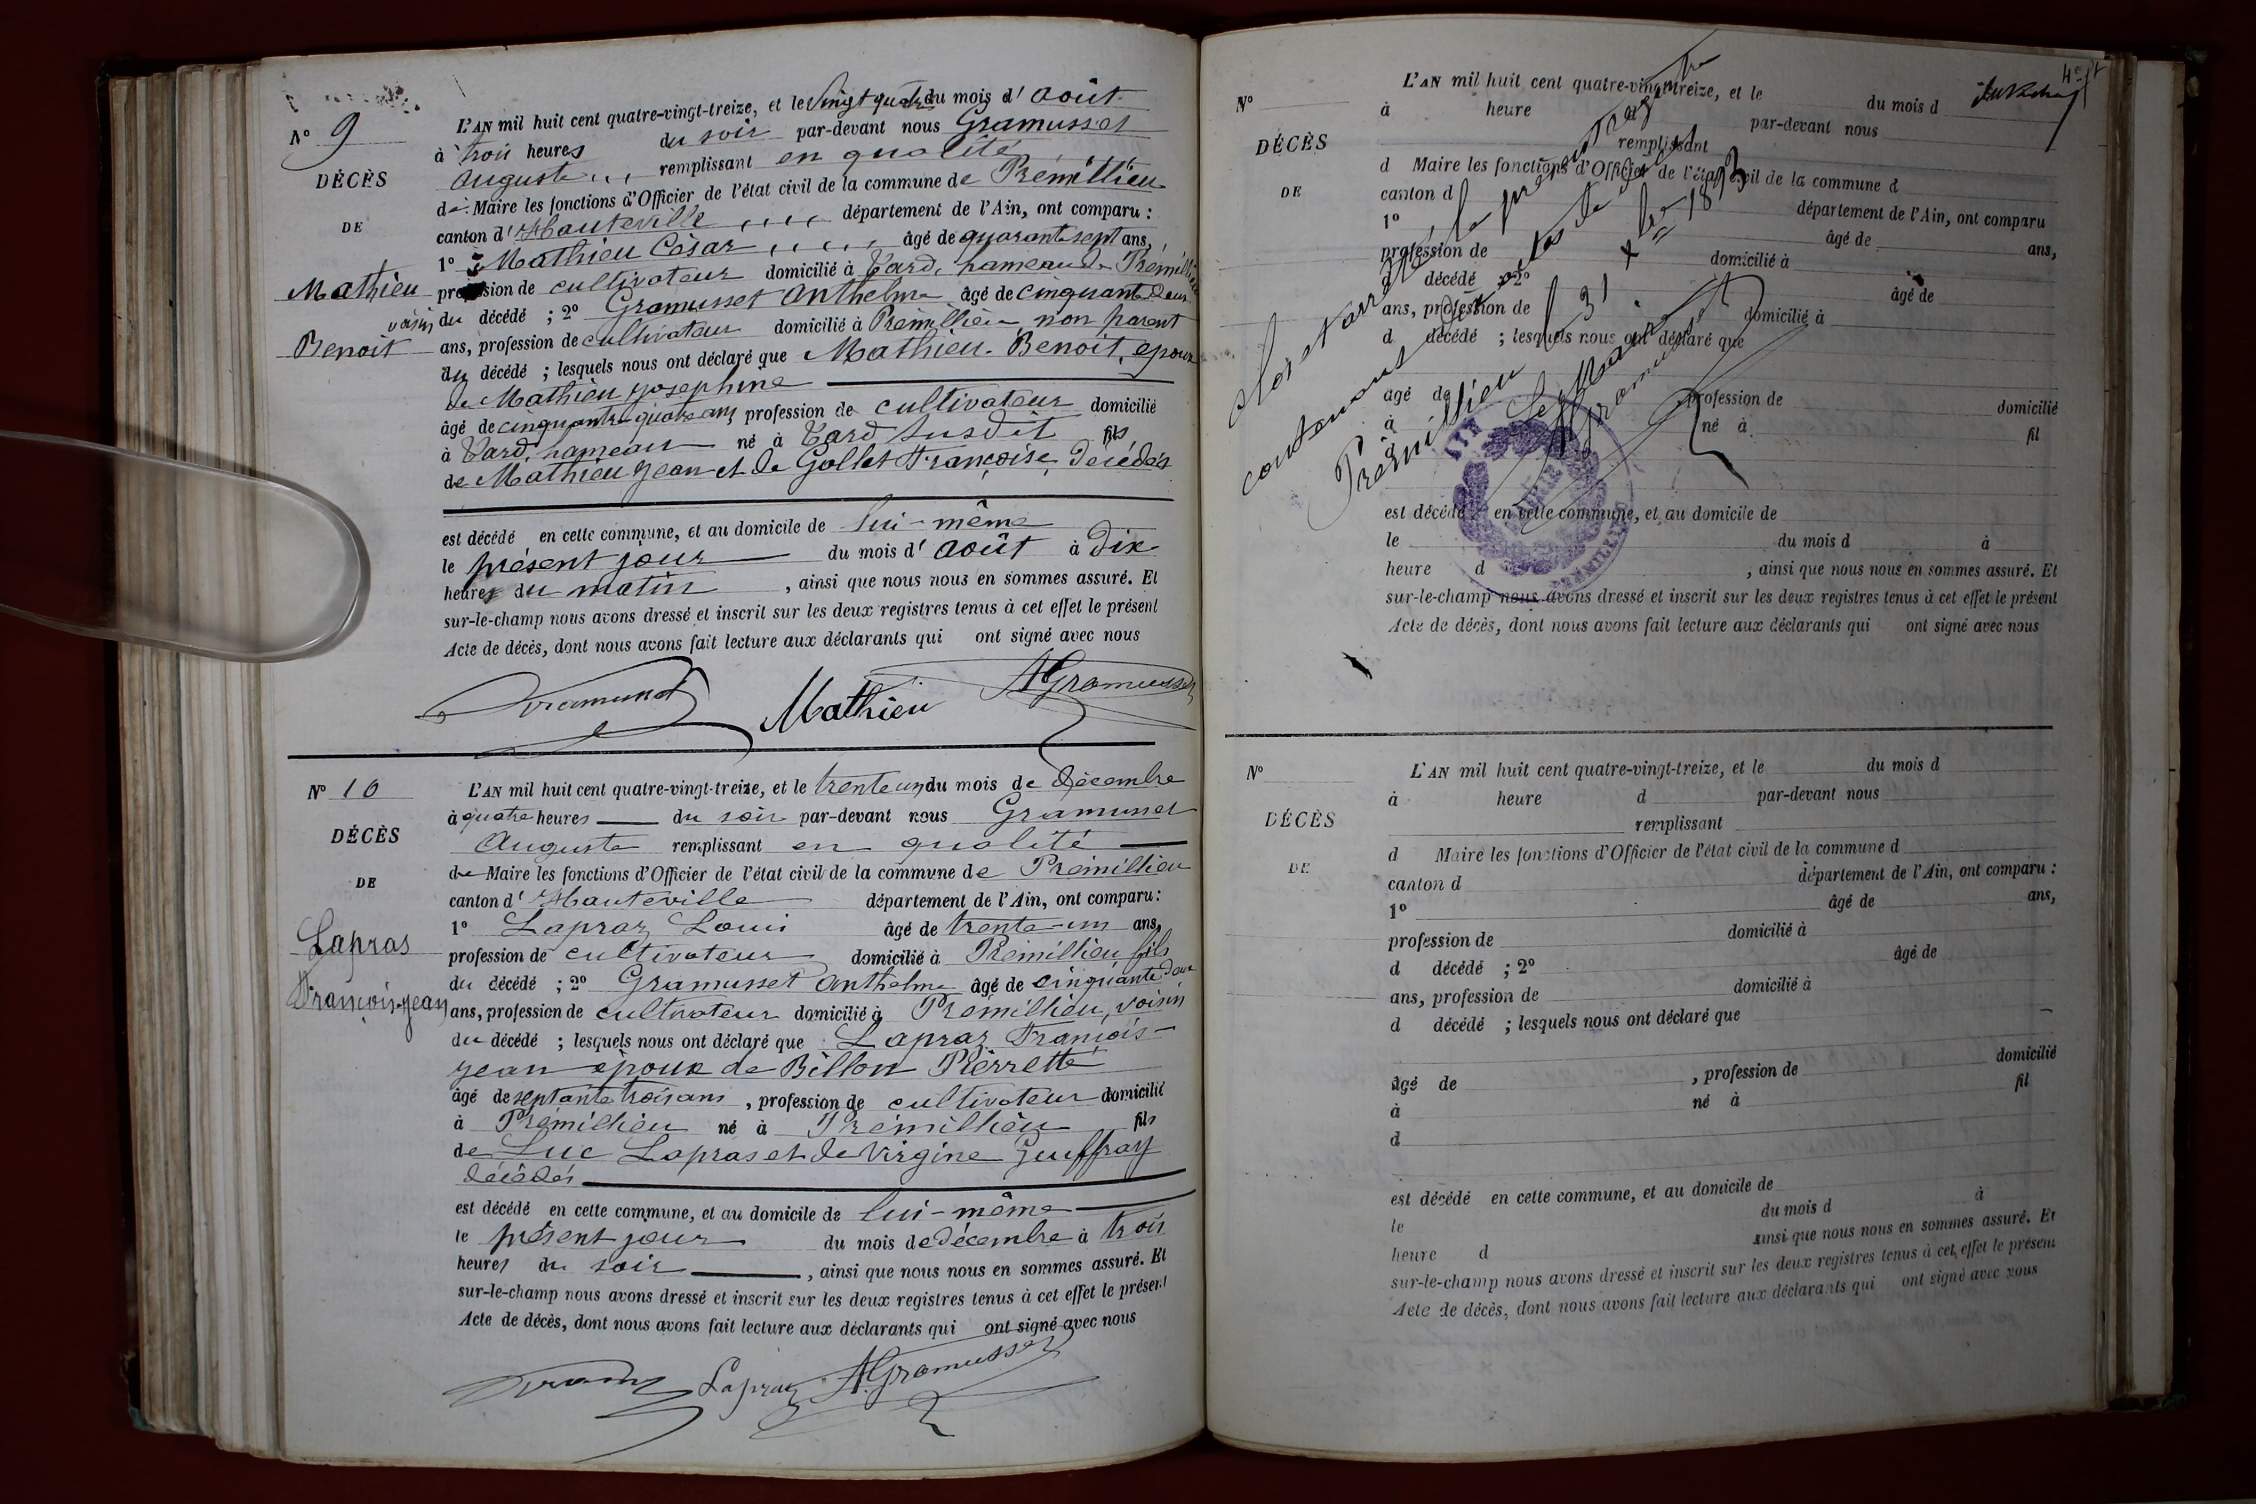 N° 9
DÉCÈS
DE
Mathieu
Benoit
L'AN mil huit cent quatre-vingt-treize, et le vingt quatre du mois d' Août
à trois heures du soir par-devant nous Gramusset
Auguste remplissant en qualité
de Maire les fonctions d'Officier de l'état civil de la commune de Prémillieu
canton d' Hauteville département de l'Ain, ont comparu :
1° Mathieu César âgé de quarante sept ans,
profession de cultivateur domicilié à Vard, hameau de Prémillieu
voisin du décédé ; 2° Gramusset Anthelme âgé de cinquante deux
ans, profession de cultivateur domicilié à Prémillieu non parent
du décédé ; lesquels nous ont déclaré que Mathieu Benoit, époux
de Mathieu Josephine
âgé de cinquante-quatre ans, profession de cultivateur domicilié
à Vard, hameau né à Vard susdit fils
de Mathieu Jean et de Gollet Françoise, décédés
est décédé en cette commune, et au domicile de lui-même
le présent jour du mois d' Août à dix
heures du matin , ainsi que nous nous en sommes assuré. Et
sur-le-champ nous avons dressé et inscrit sur les deux registres tenus à cet effet le présent
Acte de décès, dont nous avons fait lecture aux déclarants qui ont signé avec nous
Gramusset Mathieu A Gramusset
N° 10
DÉCÈS
DE
Lapras
François-Jean
L'AN mil huit cent quatre-vingt-treize, et le trente un du mois de décembre
à quatre heures du soir par-devant nous Gramusset
Auguste remplissant en qualité
de Maire les fonctions d'Officier de l'état civil de la commune de Prémillieu
canton d' Hauteville département de l'Ain, ont comparu :
1° Lapraz Loui âgé de trente-un ans,
profession de cultivateur domicilié à Prémillieu fils
du décédé ; 2° Gramusset Anthelme âgé de cinquante deux
ans, profession de cultivateur domicilié à Prémillieu, voisin
du décédé ; lesquels nous ont déclaré que Lapraz François-
Jean époux de Billon Pierrette
âgé de septante trois ans , profession de cultivateur domicilié
à Prémillieu né à Prémillieu fils
de Luc Lapras et de Virgine Geuffray
décédés
est décédé en cette commune, et au domicile de lui-même
le présent jour du mois de décembre à trois
heures du soir , ainsi que nous nous en sommes assuré. Et
sur-le-champ nous avons dressé et inscrit sur les deux registres tenus à cet effet le présent
Acte de décès, dont nous avons fait lecture aux déclarants qui ont signé avec nous
Lapraz A Gramusset
N°
DÉCÈS
DE
L'AN mil huit cent quatre-vingt-treize, et le du mois d
à heure par-devant nous
remplissant
d Maire les fonctions d'Officier de l'état civil de la commune d
canton d département de l'Ain, ont comparu
1° âgé de ans,
profession de domicilié à
d décédé 2° âgé de
ans, profession de domicilié à
d décédé ; lesquels nous ont déclaré que
âgé de profession de domicilié
à né à fil
est décédé en cette commune, et au domicile de
le du mois d à
heure d , ainsi que nous nous en sommes assuré. Et
sur-le-champ nous avons dressé et inscrit sur les deux registres tenus à cet effet le présent
Acte de décès, dont nous avons fait lecture aux déclarants qui ont signé avec nous
Clos et arrêté le présent registre
contenant
Prémillieu 31 Xbre 1893
Le Maire
Gramusset
MAIRIE
AIN
N°
DÉCÈS
DE
L'AN mil huit cent quatre-vingt-treize, et le du mois d
à heure d par-devant nous
remplissant
d Maire les fonctions d'Officier de l'état civil de la commune d
canton d département de l'Ain, ont comparu :
1° âgé de ans,
profession de domicilié à
d décédé ; 2° âgé de
ans, profession de domicilié à
d décédé ; lesquels nous ont déclaré que
âgé de , profession de domicilié
à né à fil
d
est décédé en cette commune, et au domicile de
le du mois d à
heure d ainsi que nous nous en sommes assuré. Et
sur-le-champ nous avons dressé et inscrit sur les deux registres tenus à cet effet le présent
Acte de décès, dont nous avons fait lecture aux déclarants qui ont signé avec nous